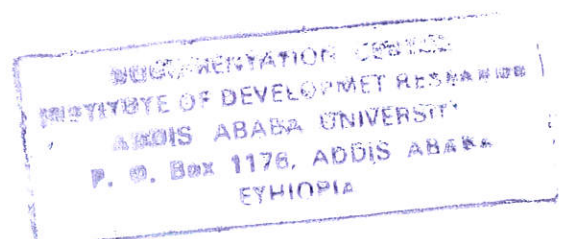 DOCUMENTATION CENTRE
INSTITUTE OF DEVELOPMET RESEARCH
ADDIS ABABA UNIVERSITY
P. O. Box 1176, ADDIS ABABA
EYHIOPIA